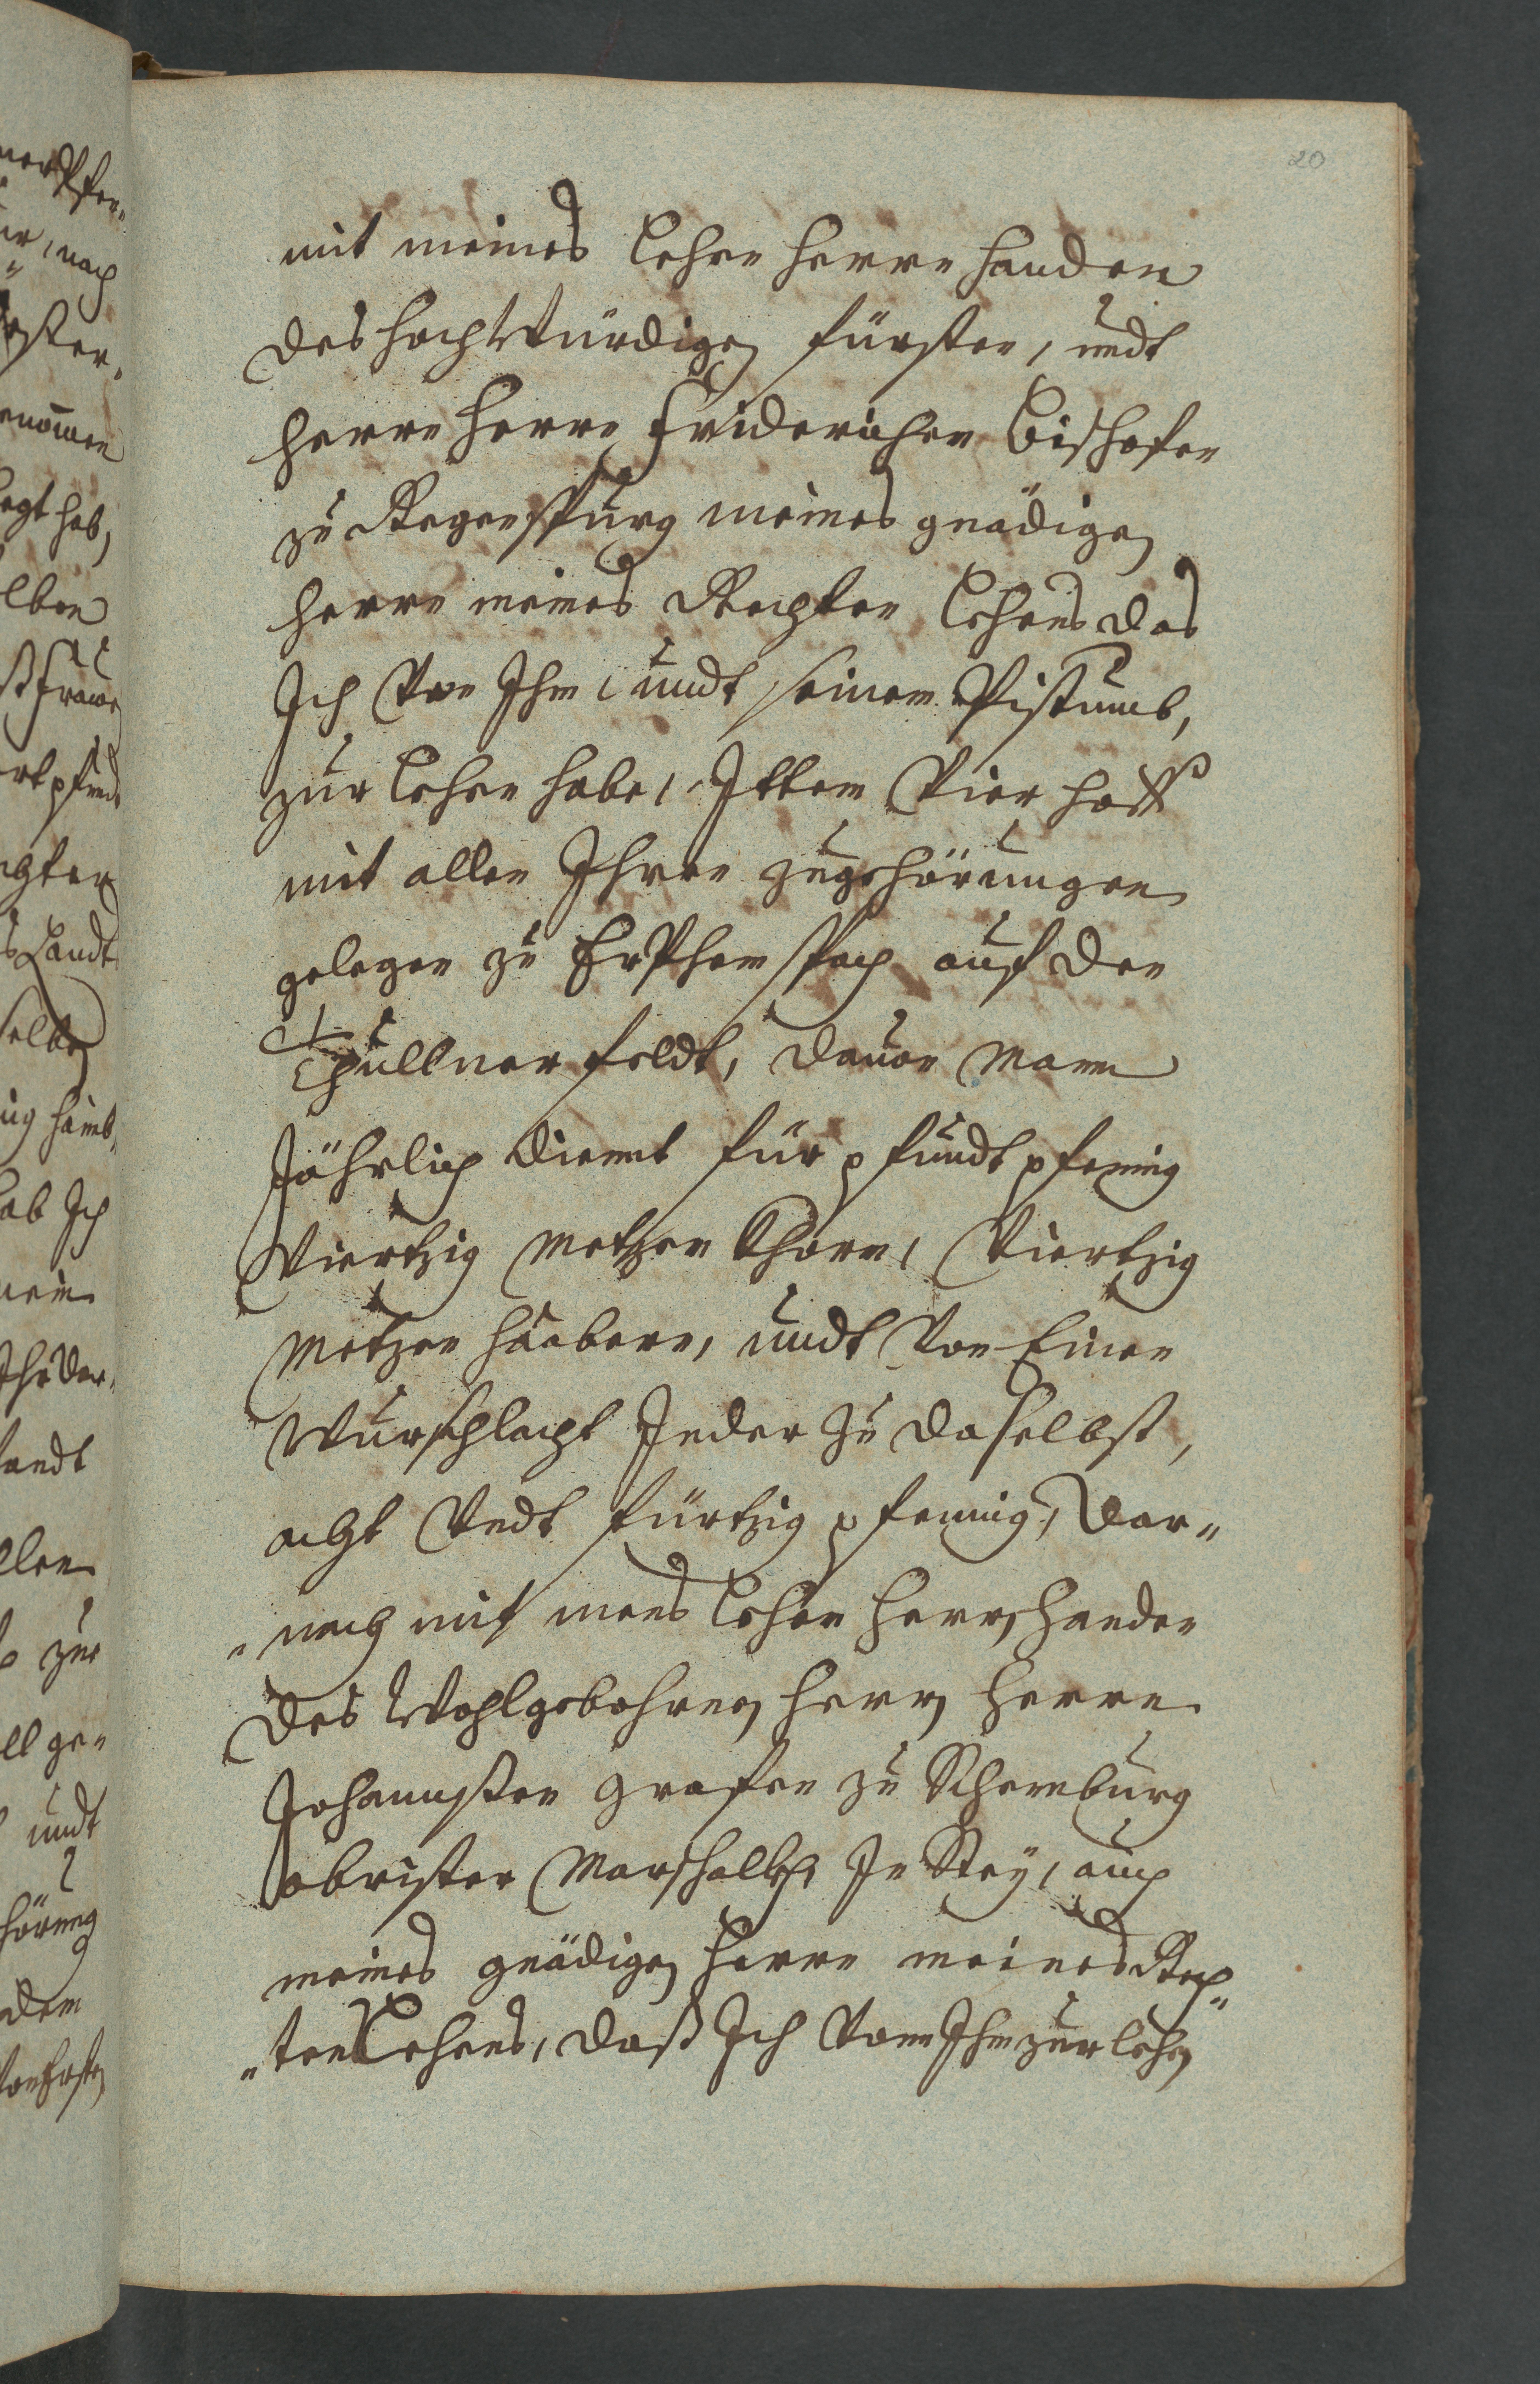 20
mit meines Lehen Herrn Handen
des Hochwürdigen Fürsten, undt
Herrn Herrn Friderichen Bischofen
zu Regenspurg meines gnädigen
Herrn meines Rechten Lehens das
Ich Von Ihm, undt seinem Pistumb,
zur Lehen habe, Ittem Vier hoff
mit allen Ihren zugehörungen
gelegen zu auf den
Thullner feldt, dauon Mann
Jährlich dienet für pfundt pfening
Viertzig Metzen Khorn, Viertzig
Metzen Haabern, undt Von Einer
Wurschlacht Jeder zu daselbst,
acht Vndt fürtzig pfening, dar„
„nach mit meines Lehen Herrn Handen
des Wohlgebohrnen Herrn Herrn
Johannsten Grafen zu Schemburg
obrister Marschalckh In Stey, auch
meines gnädigen Herrn meines Rech„
„ten Lehens, daß Ich Von Ihm zur Lehen